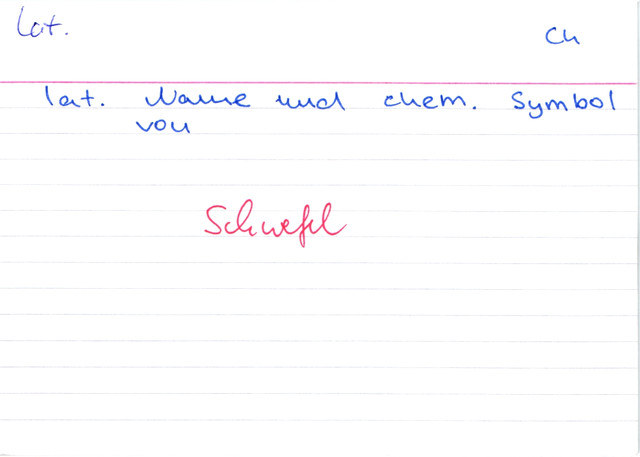 Lat.
Ch
lat. Name und chem. Symbol
von
Schwefel